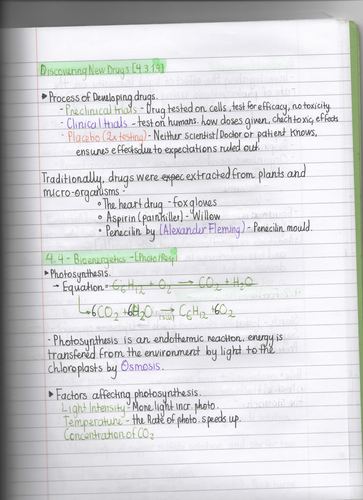 Discovering New Drugs [4.3.1.9]
▸ Process of Developing drugs.
- Preclinical trials - Drug tested on cells, test for efficacy, no toxicity.
- Clinical trials - test on humans. low doses given, check toxic, effects
- Placebo (2x testing) - Neither scientist/Doctor or patient knows,
ensures effects due to expectations ruled out.
Traditionally, drugs were expec extracted from plants and
micro-organisms -
• The heart drug - foxgloves
• Aspirin (painkiller) - Willow
• Penecilin by (Alexander Fleming) - Penecilin mould.
4.4 - Bioenergetics - [Photo/Resp]
▸ Photosynthesis.
→ Equation = C₆H₁₂ + O₂ → CO₂ + H₂O
↳ 6CO₂ + 6H₂O → C₆H₁₂ + 6O₂
- Photosynthesis is an endothermic reaction. energy is
transfered from the environment by light to the
chloroplasts by Osmosis.
▸ Factors affecting photosynthesis.
Light Intensity - More light incr. photo.
Temperature - the Rate of photo. speeds up.
Concentration of CO₂